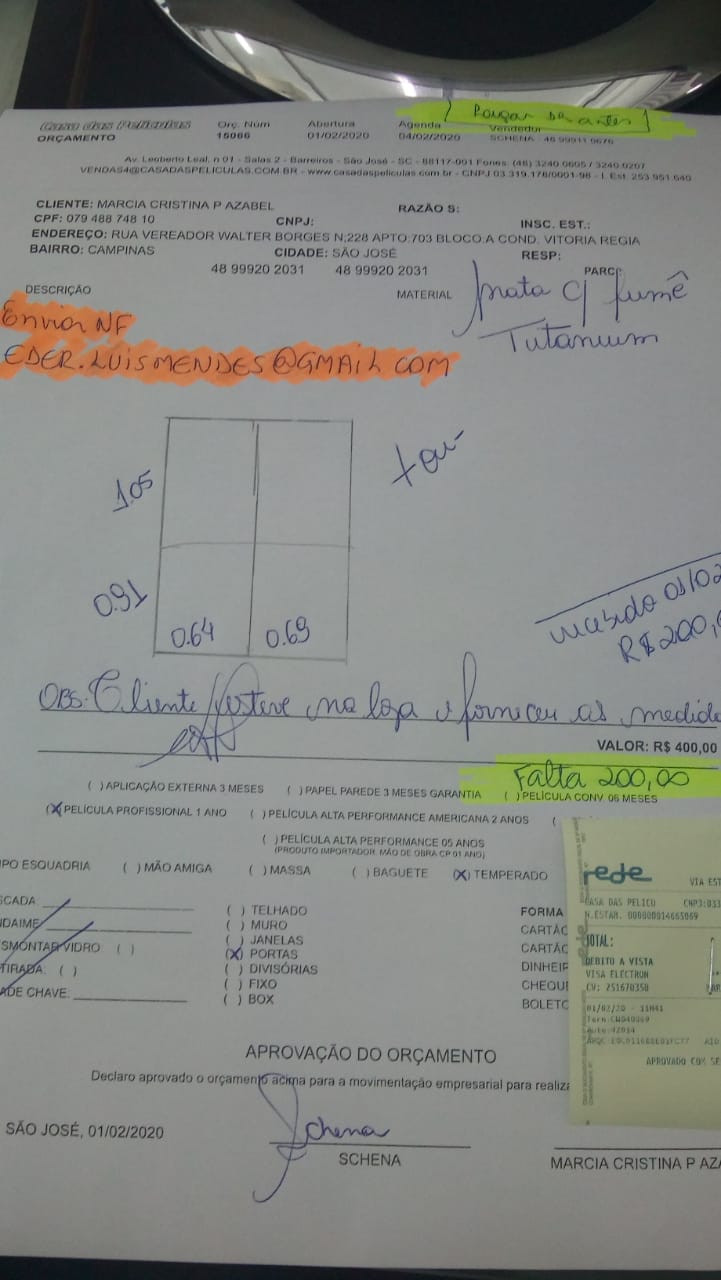 Casa das Películas
ORÇAMENTO
Orç. Núm
15066
Abertura
01/02/2020
Agenda
04/02/2020
Vendedor
SCHENA - 48 99911 0676
Av. Leoberto Leal, n 01 - Salas 2 - Barreiros - São José - SC - 88117-001 Fones: (48) 3240 0605 / 3240 0207
VENDAS4@CASADASPELICULAS.COM.BR - www.casadaspeliculas.com.br - CNPJ 03.319.178/0001-98 - I. Est. 253.951.640
CLIENTE: MARCIA CRISTINA P AZABEL
RAZÃO S:
CPF: 079 488 748 10
CNPJ:
INSC. EST.:
ENDEREÇO: RUA VEREADOR WALTER BORGES N:228 APTO:703 BLOCO:A COND. VITORIA REGIA
BAIRRO: CAMPINAS
CIDADE: SÃO JOSÉ
RESP:
48 99920 2031 48 99920 2031
PARC:
DESCRIÇÃO
MATERIAL
prata c/ fumê
Tutanium
Enviar NF
EDER.LUISMENDES@GMAIL COM
1.05
0.91
0.64 0.69
R$200,
OBS: Cliente esteve na loja e forneceu as medida
VALOR: R$ 400,00
Falta 200,00
( ) APLICAÇÃO EXTERNA 3 MESES ( ) PAPEL PAREDE 3 MESES GARANTIA ( ) PELÍCULA CONV. 06 MESES
(X) PELÍCULA PROFISSIONAL 1 ANO ( ) PELÍCULA ALTA PERFORMANCE AMERICANA 2 ANOS (
( ) PELÍCULA ALTA PERFORMANCE 05 ANOS
(PRODUTO IMPORTADOR. MÃO DE OBRA CP 01 ANO)
PO ESQUADRIA ( ) MÃO AMIGA ( ) MASSA ( ) BAGUETE (X) TEMPERADO
SCADA:
NDAIME:
SMONTAR VIDRO ( )
TIRADA: ( )
ADE CHAVE:
( ) TELHADO
( ) MURO
( ) JANELAS
(X) PORTAS
( ) DIVISÓRIAS
( ) FIXO
( ) BOX
FORMA
CARTÃO
CARTÃO
DINHEIR
CHEQU
BOLETO
rede
VIA EST
CASA DAS PELICU CNPJ:033
N.ESTAB. 000000014665069
TOTAL:
DEBITO A VISTA
VISA ELECTRON
CV: 251670358
01/02/20 - 11H41
APROVADO COM SE
APROVAÇÃO DO ORÇAMENTO
Declaro aprovado o orçamento acima para a movimentação empresarial para realiza
SÃO JOSÉ, 01/02/2020
Schena
SCHENA
MARCIA CRISTINA P AZA